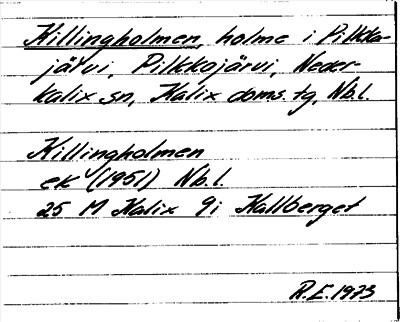 Killingholmen, holme i Pilkka-
järvi, Pilkkojärvi, Neder-
kalix sn, Kalix doms.tg, Nb.l.
Killingholmen
ek (1951) Nb.l.
25 M Kalix 9i Kallberget
R.E. 1973